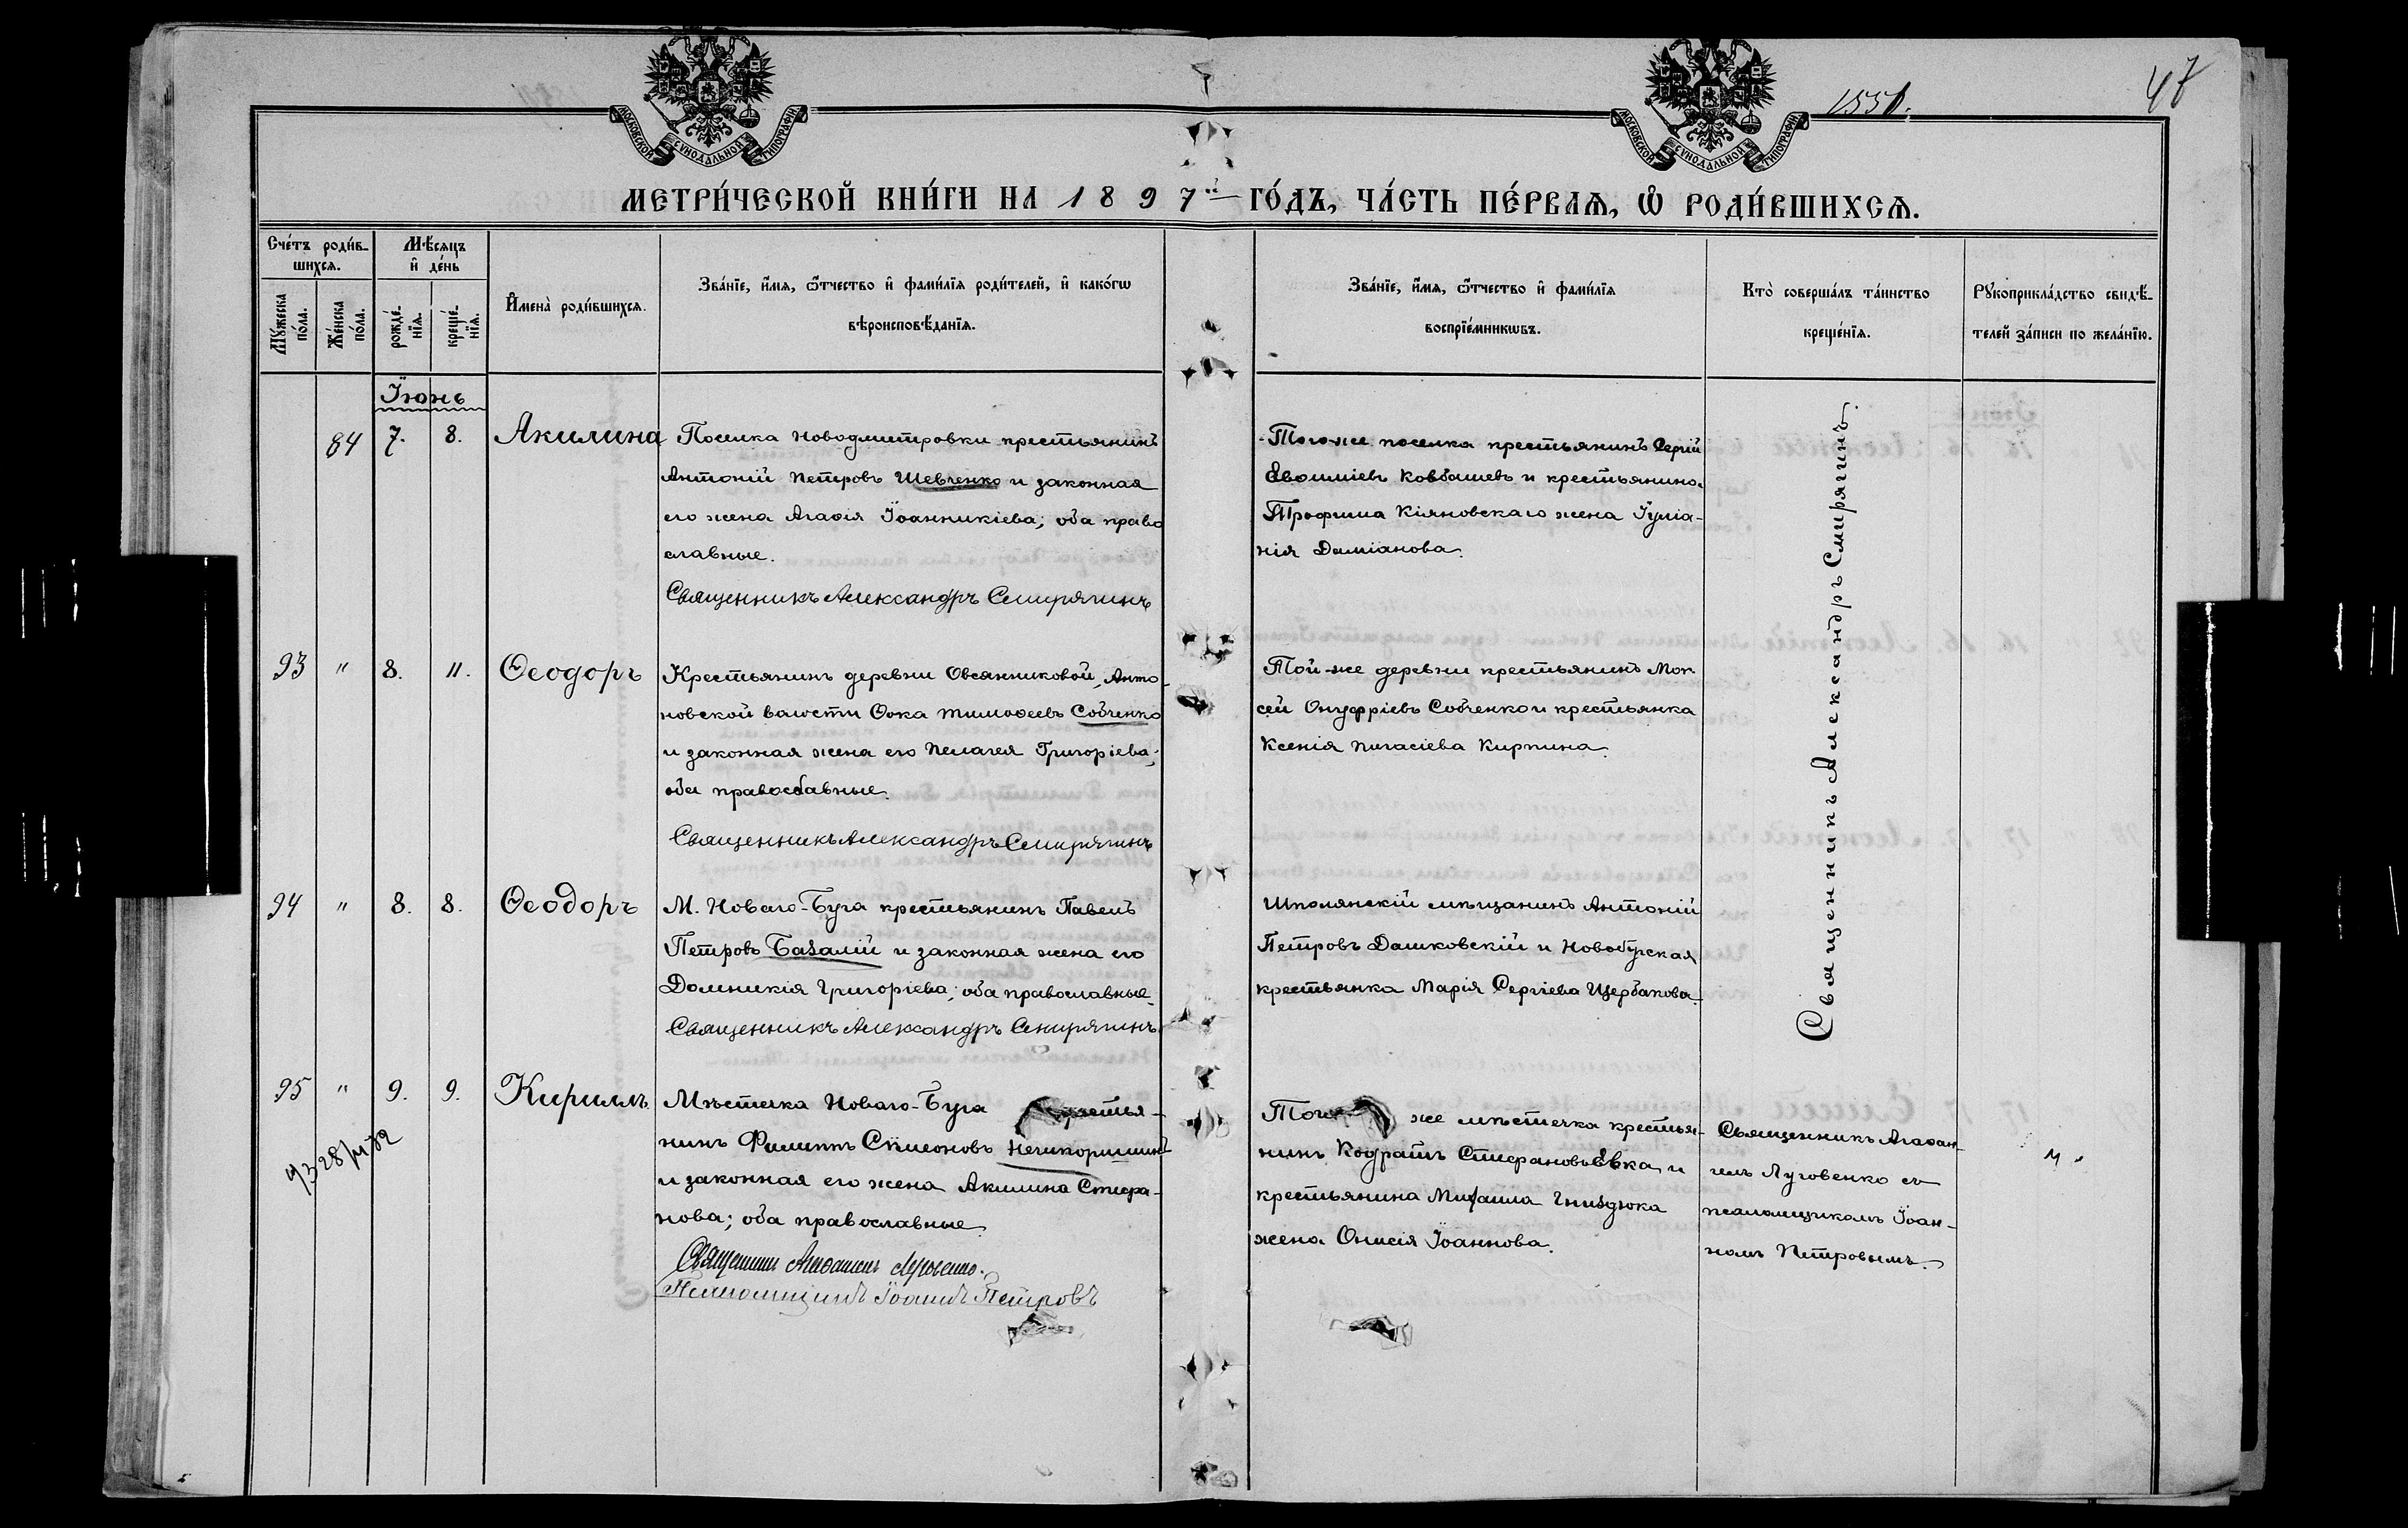 МОСКОВСКОЙ СУНОДАЛЬНОЙ ТИПОГРАФІИ
МОСКОВСКОЙ СУНОДАЛЬНОЙ ТИПОГРАФІИ
47
МЕТРИ́ЧЕСКОЙ КНИ́ГИ НА 1897й ГО́ДЪ, ЧА́СТЬ ПЕ́РВАѦ, Ѡ҆ РОДИ́ВШИХСѦ.
Сче́тъ роди́в-
шихсѧ.
Мѣ́сѧцъ
и҆ де́нь
Мꙋ́жеска
по́ла.
Же́нска
по́ла.
рожде́-
нїѧ.
креще́-
нїѧ.
И҆мена̀ роди́вшихсѧ.
Зва́нїе, и҆́мѧ, ѻ҆́тчество и҆ фами́лїѧ роди́телей, и҆ како́гѡ
вѣроисповѣ́данїѧ.
Зва́нїе, и҆́мѧ, ѻ҆́тчество и҆ фами́лїѧ
воспрїе́мникѡвъ.
Кто̀ соверша́лъ та́инство
креще́нїѧ.
Рꙋкоприкла́дство свидѣ́-
телей за́писи по жела́нїю.
Іюнь
84 7. 8. Акилина
Поселка Новодмитровки крестьянинъ
Антоній Петровъ Шевченко и законная
его жена Агаѳія Іоанникіева; оба право
славные.
Священникъ Александръ Смирягинъ
Того-же поселка крестьянинъ Сергій
Евѳиміевъ Ковбашевъ и крестьянина
Трофима Кіяновскаго жена Іуліа-
нія Даміанова.
Священникъ Александръ Смирягинъ.
93 " 8. 11. Ѳеодоръ
Крестьянинъ деревни Овсянниковой, Анто-
новской волости Ѳока Тимоѳеевъ Собченко
и законная жена его Пелагея Григоріева;
оба православные.
Священникъ Александръ Смирягинъ
Той-же деревни крестьянинъ Мок
сей Онуфріевъ Собченко и крестьянка
Ксенія Пигасіева Кирпина.
94 " 8. 8. Ѳеодоръ
М. Новаго-Буга крестьянинъ Павелъ
Петровъ Базалій и законная жена его
Домникія Григоріева; оба православные.
Священникъ Александръ Смирягинъ.
Шполянскій мѣщанинъ Антоній
Петровъ Дашковскій и Новобугская
крестьянка Марія Сергіева Щербакова.
95 " 9. 9. Кириллъ
Мѣстечка Новаго-Буга крестья-
нинъ Филиппъ Симеоновъ Нечикоришинъ
и законная его жена Акилина Стефа-
нова; оба православные.
Псаломщикъ Іоаннъ Петровъ
же мѣстечка крестья-
нинъ Кодратъ Стефановъ Евка и
крестьянина Михаила Гниздюка
жена Онисія Іоаннова.
Священникъ Агаѳан-
гелъ Луговенко съ
псаломщикомъ Іоан-
номъ Петровымъ.